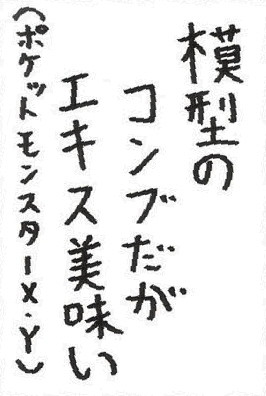 模型の
コンブだが
エキス美味い
(ポケットモンスターX・Y)